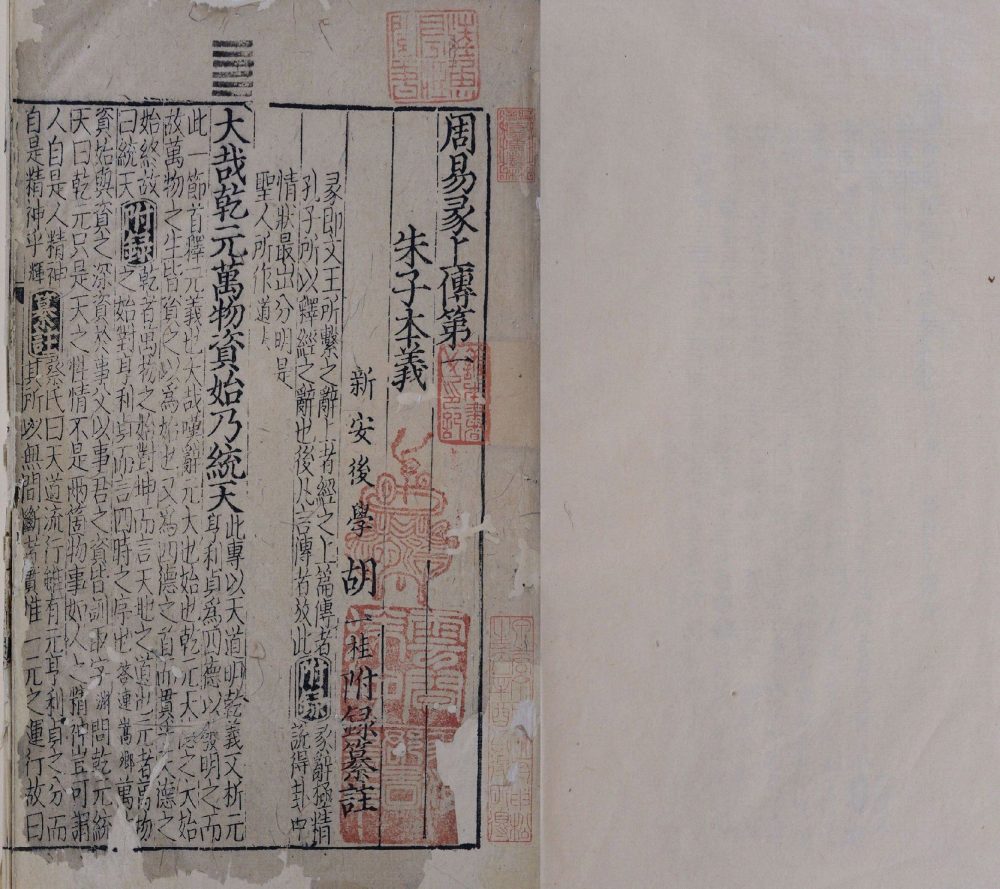 周易彖上傳第一
朱子本義
新安後學胡一桂附録纂註
彖即文王所繫之辭上者經之上篇傳者
孔子所以釋經之辭也後凡言傳者放此附録彖辭極精
情狀最出分明是
聖人所作道
大哉乾元萬物資始乃統天此專以天道明乾義又析元
亨利貞爲四德以發明之而
此一節首釋元義也大哉嘆辭元大也始也乾元天德之大始
故萬物之生皆資之以爲始也又爲四德之首而貫乎天德之
始終故
曰統天附録乾者萬物之始對坤而言天地之道也元者萬物
之始對亨利貞而言四時之序也答連嵩卿萬
資始與資之深資於事父以事君之資皆訓取字淵問乾元統
天曰乾元只是天之性情不是兩箇物事如人之精神豈可謂
人自是人精神
自是精神乎輝纂註蔡氏曰天道流行雖有元亨利貞之分而
其所以無間斷者實惟一元之運行故曰